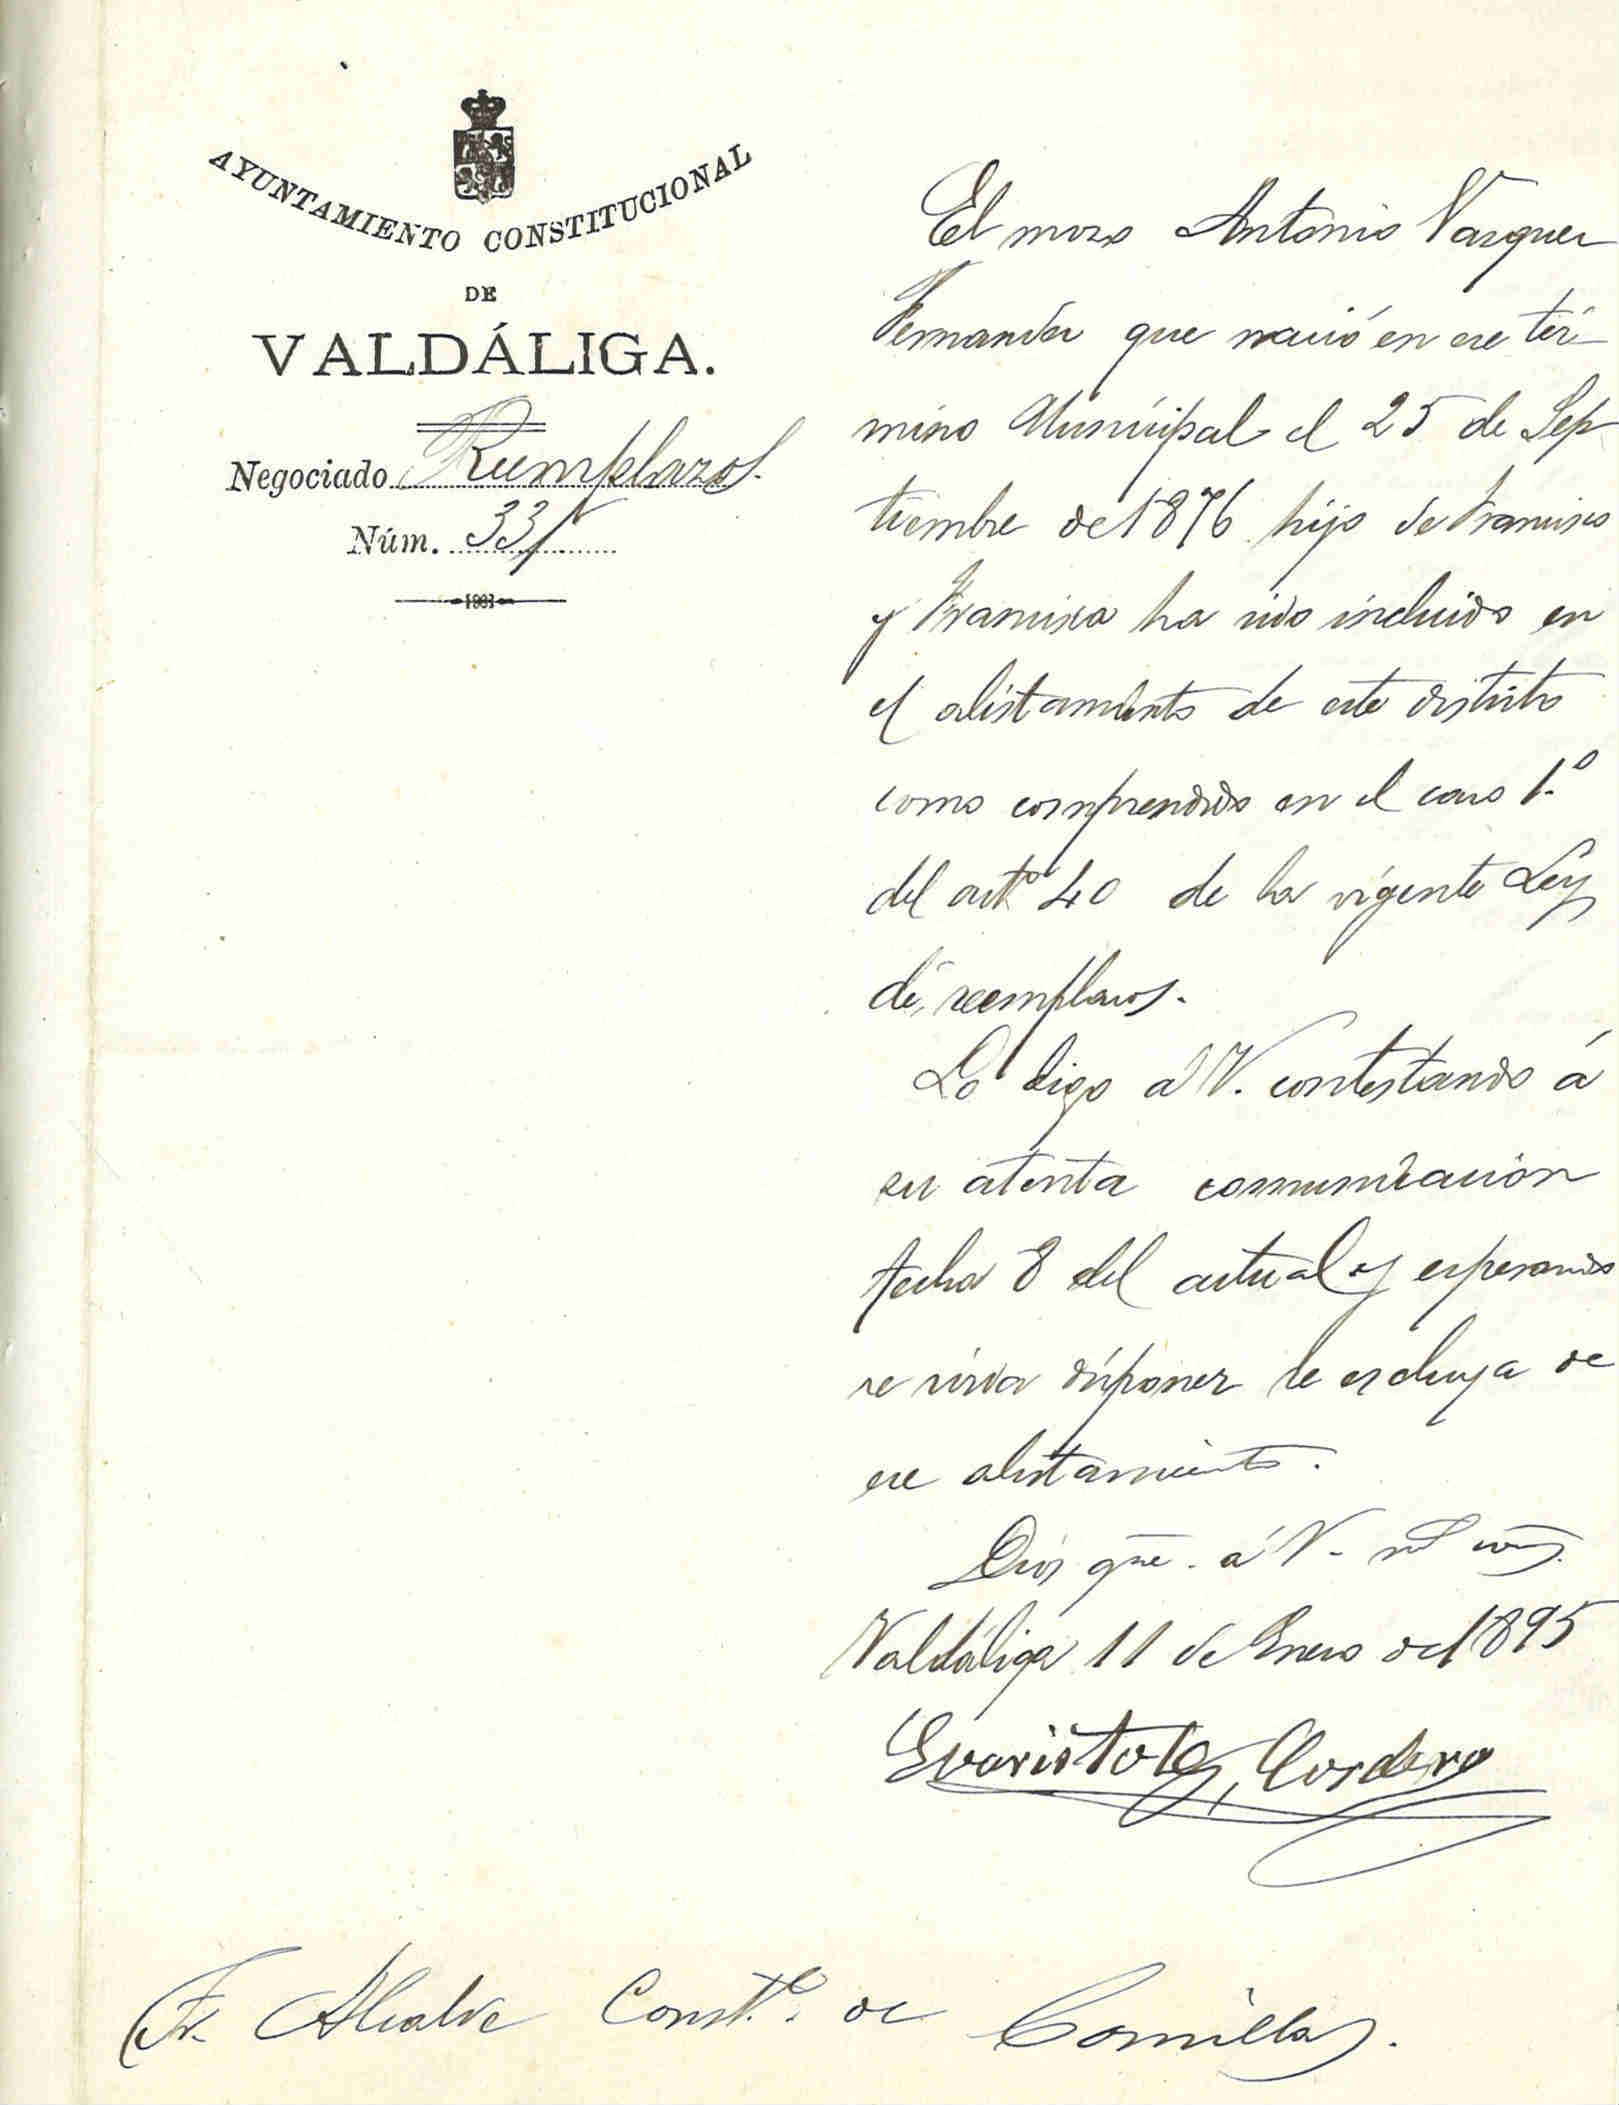 AYUNTAMIENTO CONSTITUCIONAL
DE
VALDÁLIGA.
Negociado Reemplazos.
Núm. 331
El mozo Antonio Vazquez
Fernandez que nació en ese tér-
mino Municipal el 25 de Sep
tiembre de 1876 hijo de Francisco
y Francisca ha sido incluido en
el alistamiento de este distrito
como comprendido en el caso 1.º
del artº 40 de la vigente Ley
de reemplazos.
Lo digo á V. contestando á
su atenta comunicación
fecha 8 del actual y esperando
se sirva disponer se escluya de
ese alistamiento.
Dios gûe. á V. ms. as.
Valdáliga 11 de Enero de 1895
Evaristo G. Cordero
Sr. Alcalde Constl. de Comillas.